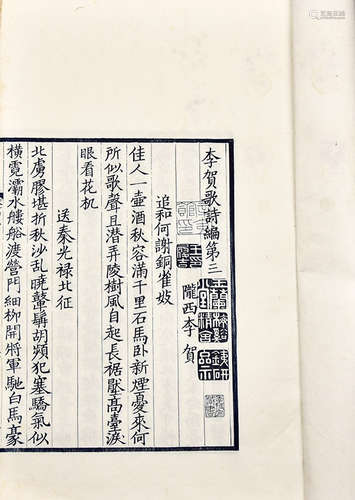 李賀歌詩編第三
隴西李賀
追和何謝銅雀妓
佳人一壺酒秋容滿千里石馬卧新煙憂來何
所似歌聲且潛弄陵樹風自起長裾壓高臺淚
眼看花机
送秦光禄北征
北虜膠堪折秋沙乱曉鼙髯胡頻犯塞驕氣似
横霓灞水樓船渡營門細柳開將軍馳白馬豪